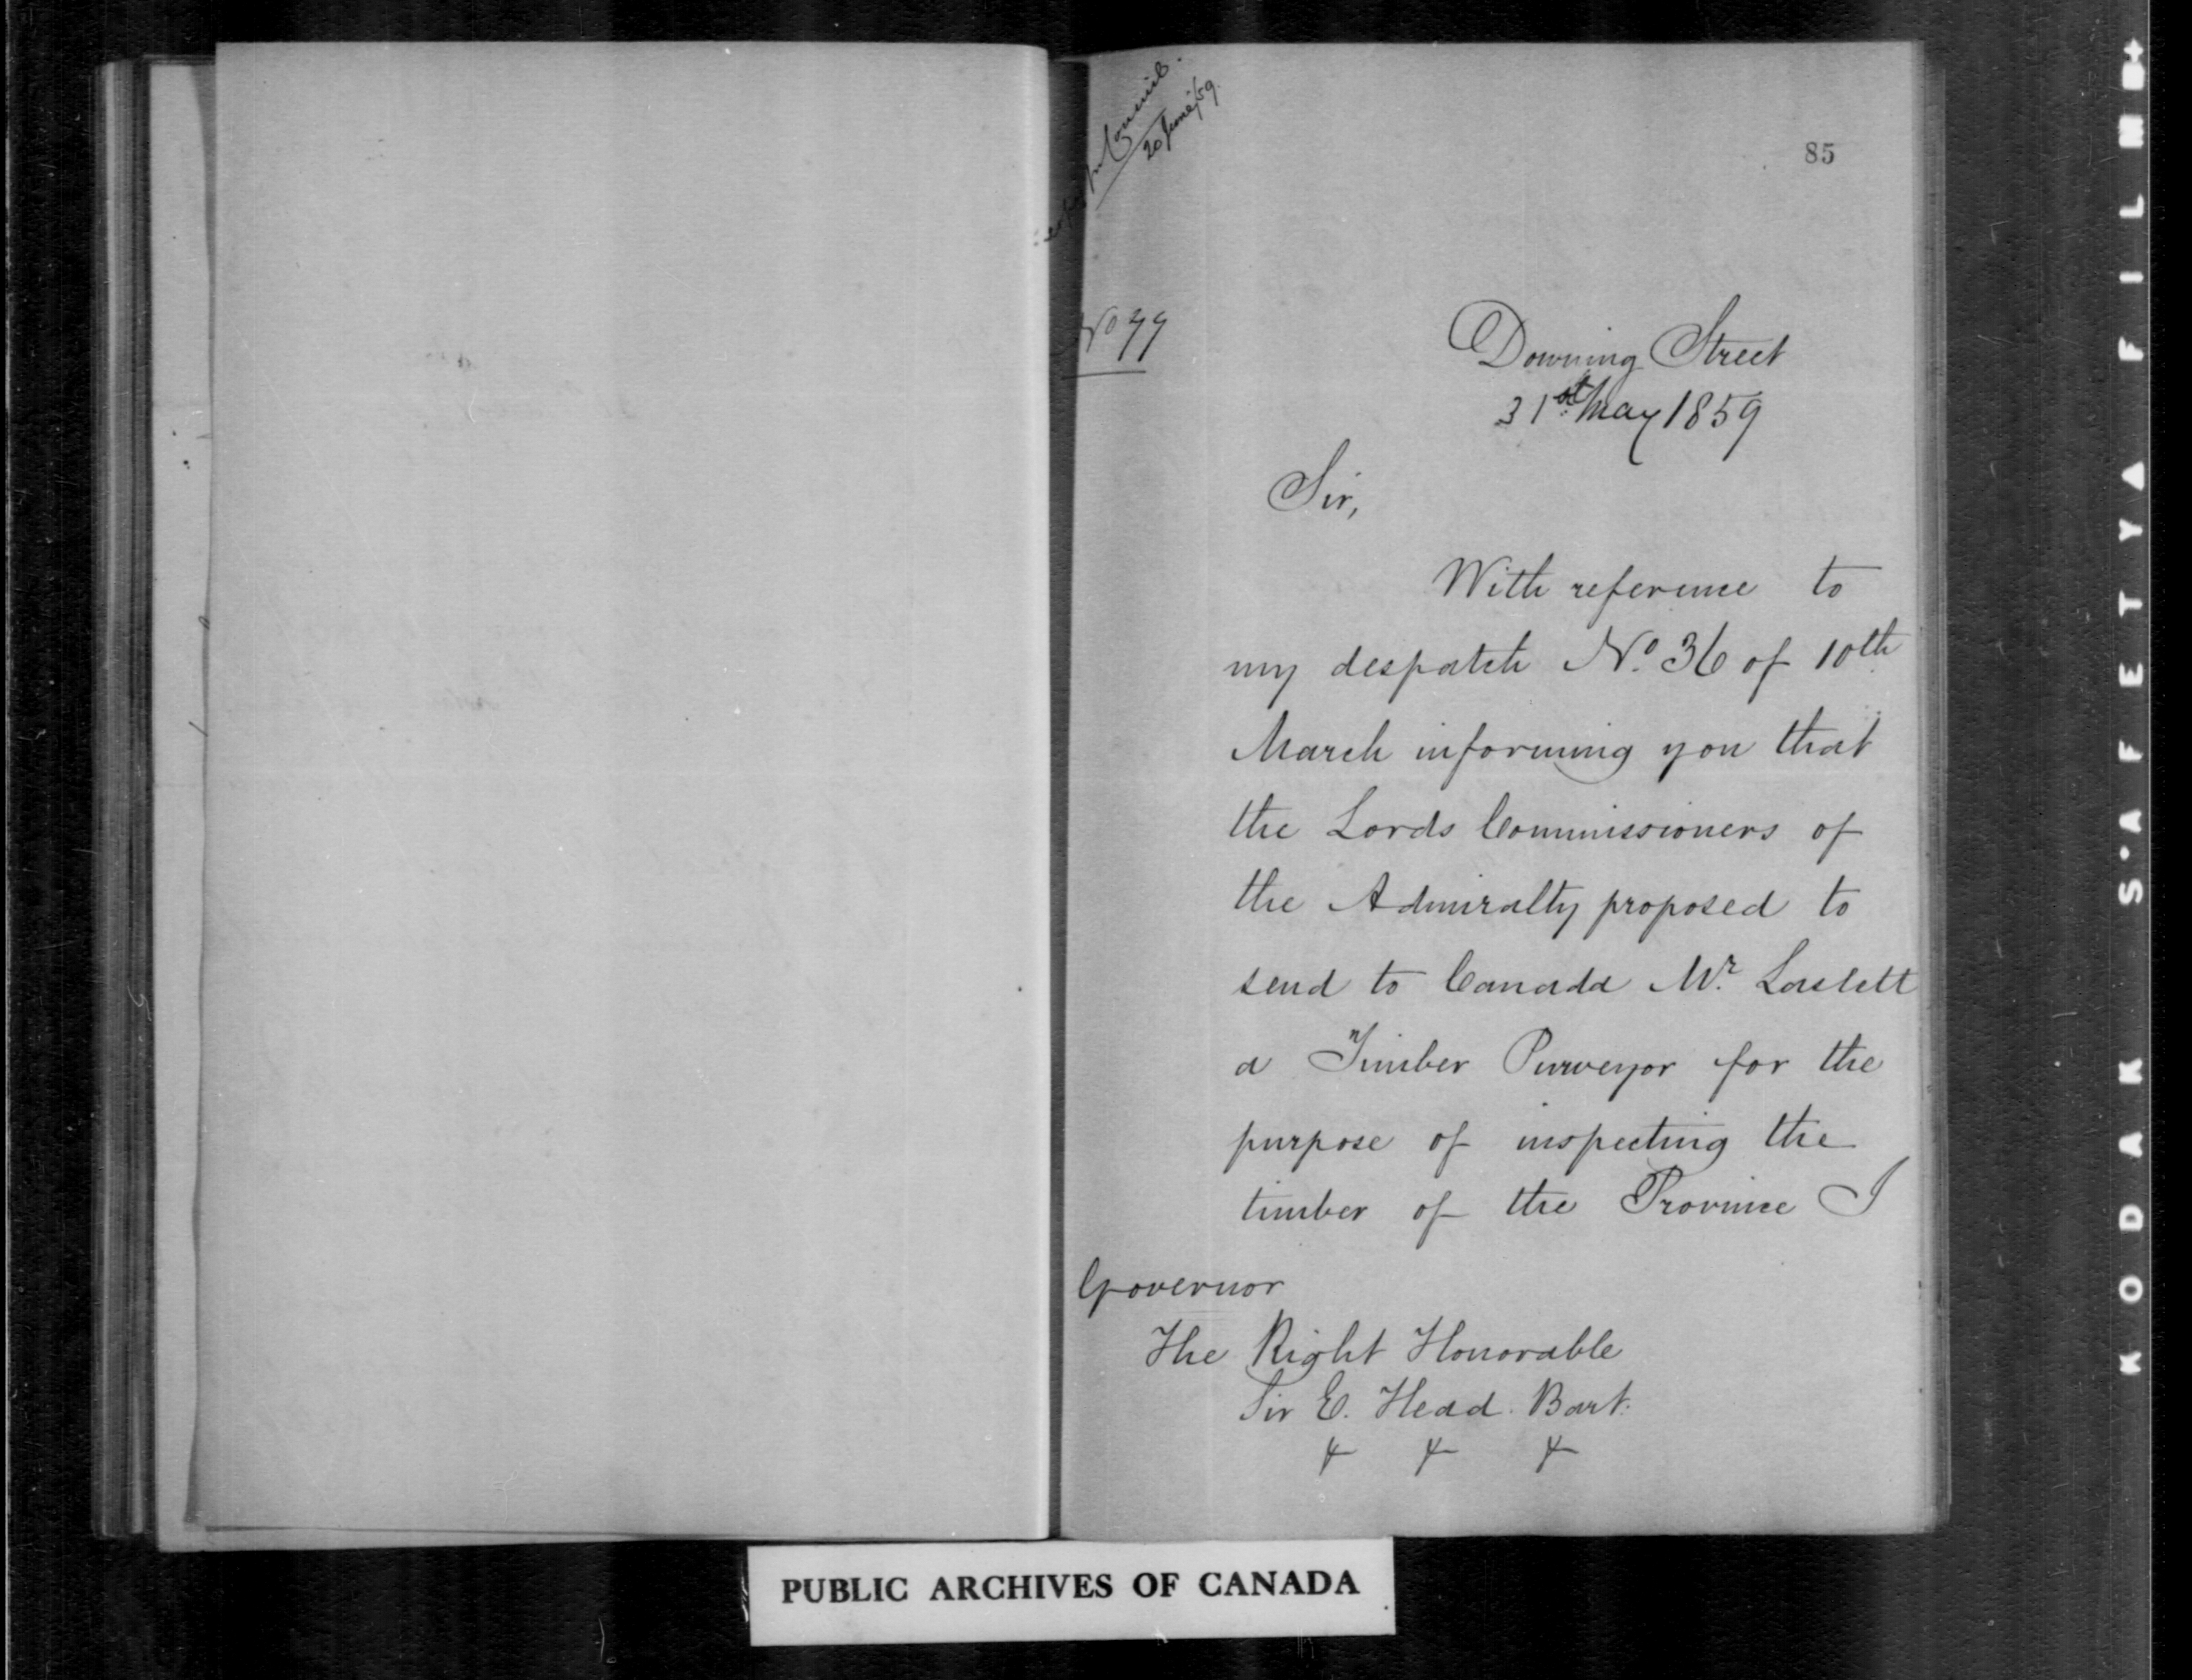 Council.
20 June/59.
85
No 77
Downing Street
31st May 1859
Sir,
With reference to
my despatch No. 36 of 10th
March informing you that
the Lords Commissioners of
the Admiralty proposed to
send to Canada Mr. Laslett
a Timber Purveyor for the
purpose of inspecting the
timber of the Province I
Governor
The Right Honorable
Sir E. Head. Bart.
PUBLIC ARCHIVES OF CANADA
KODAK S'AFETYA FILM